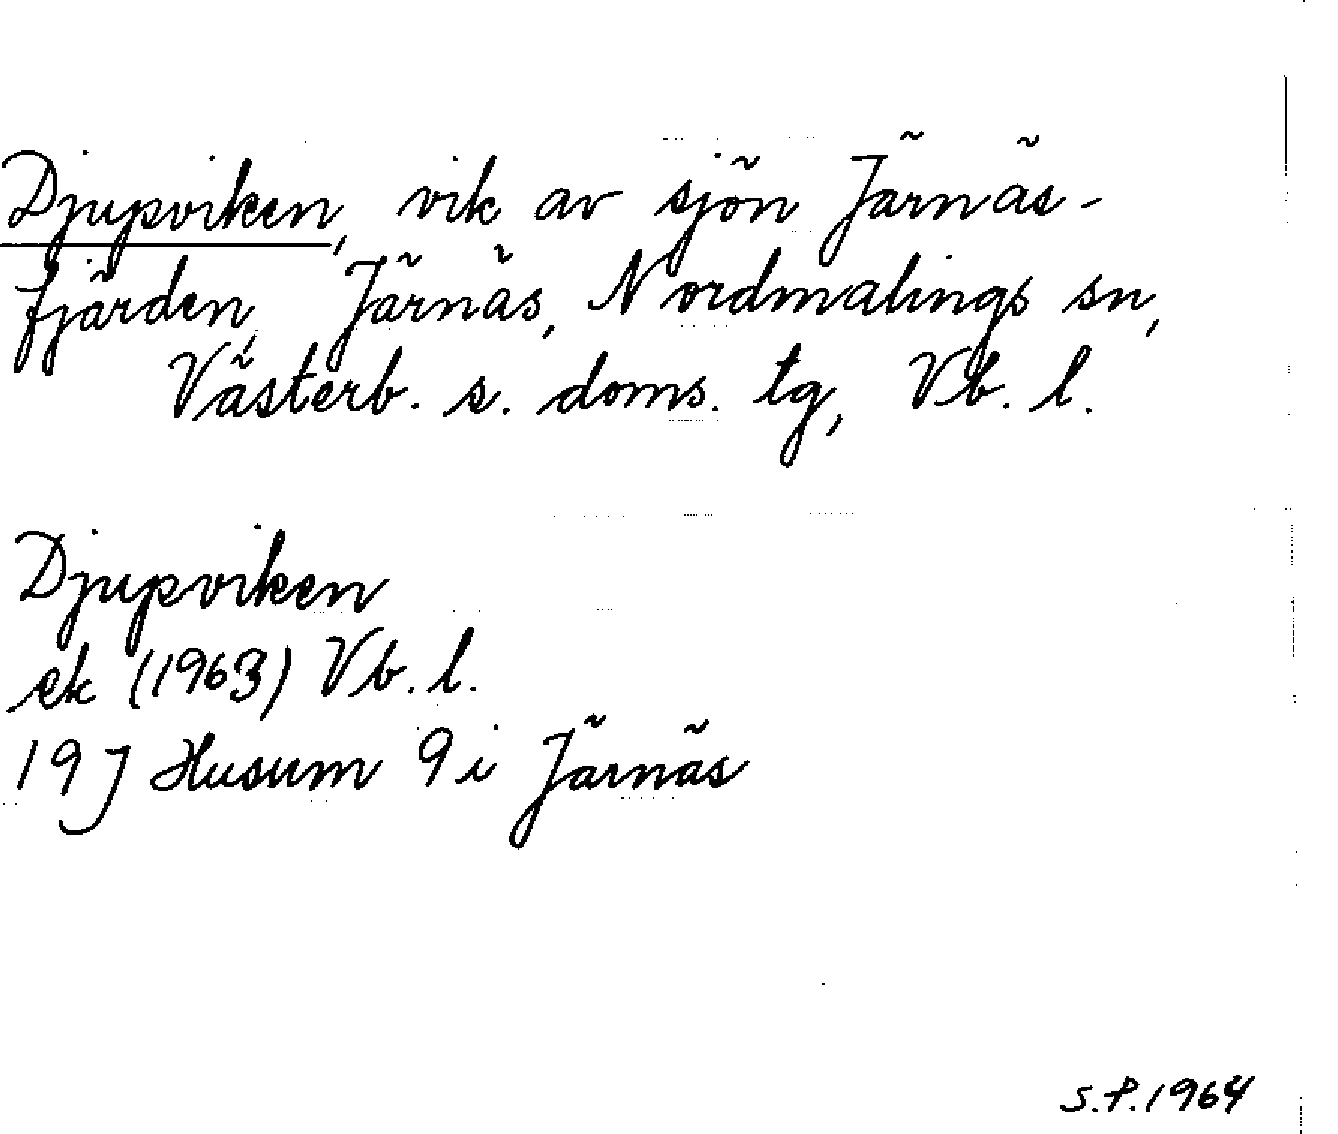 Djupviken, vik av sjön Järnäs-
fjärden, Järnäs, Nordmalings sn,
Västerb. s. doms. tg, Vb. l.
Djupviken
ek (1963) Vb. l.
19J Husum 9i Järnäs
S.P. 1964